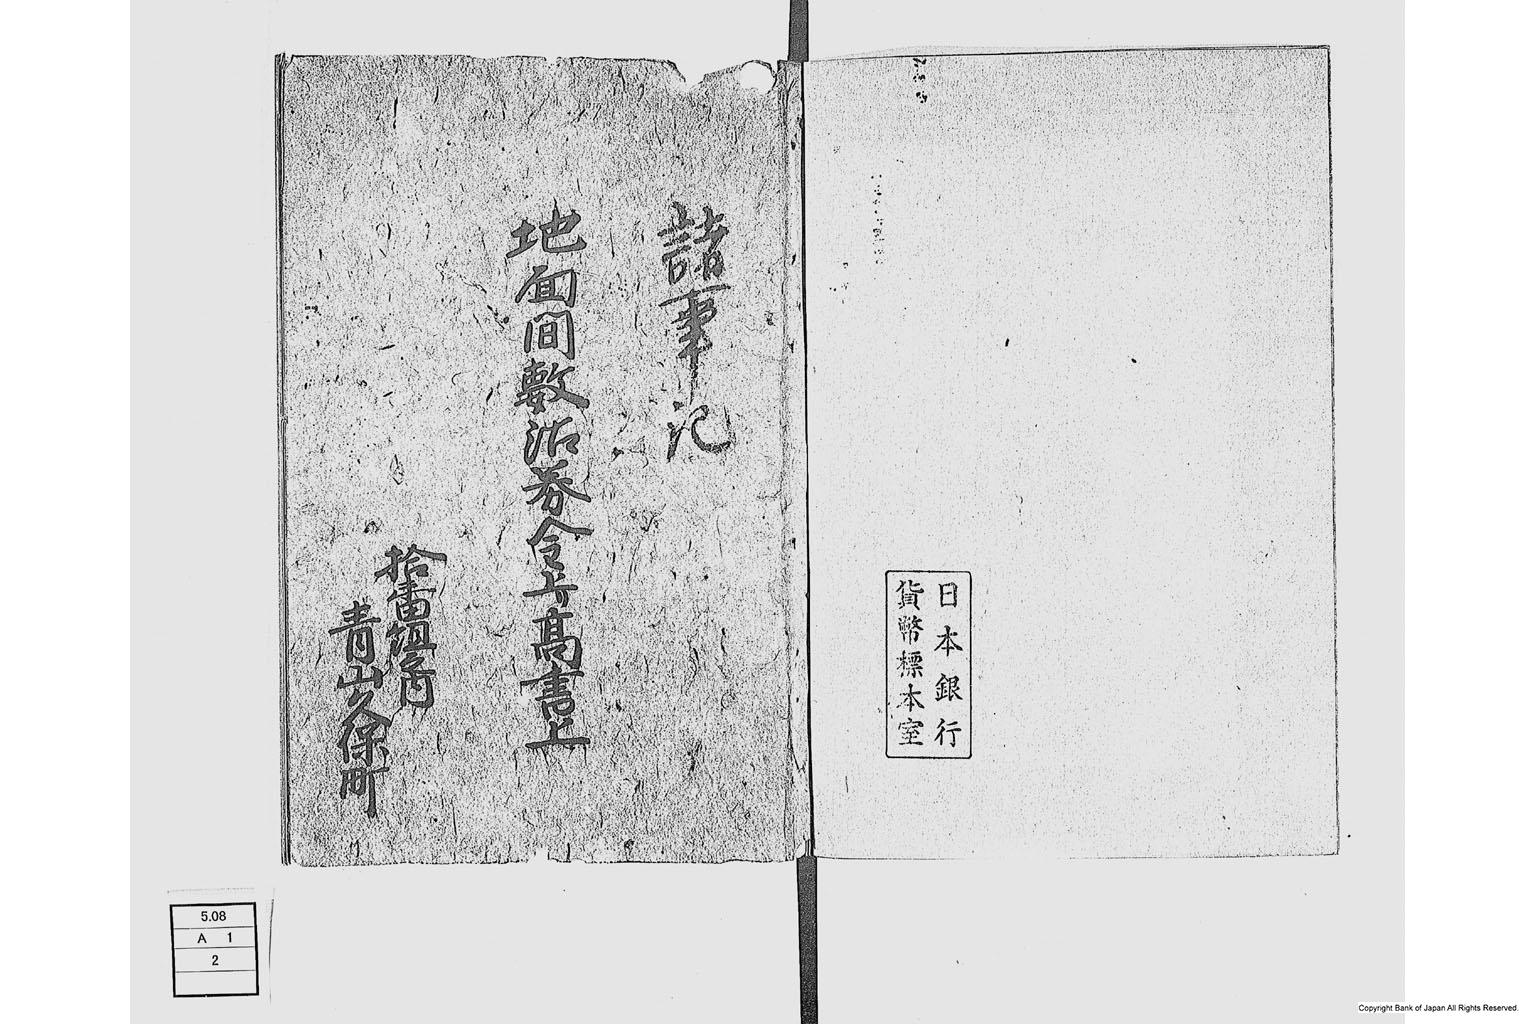 日本銀行
貨幣標本室
諸事記
地面間數沽券令上高書上
拾番組之内
青山久保町
5.08
A 1
2
Copyright Bank of Japan All Rights Reserved.